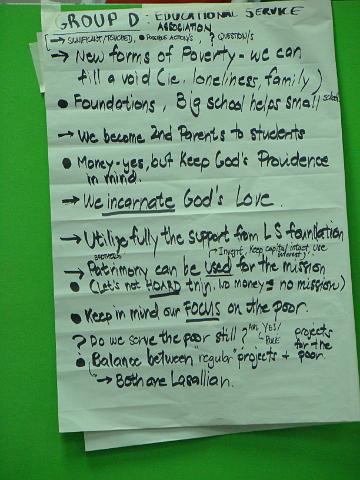 GROUP D : EDUCATIONAL SERVICE
ASSOCIATION
[→ SIGNIFICANT/TOUCHED, ● POSSIBLE ACTION/S, ? QUESTION/S
→ New forms of Poverty - we can
fill a void (ie. loneliness, family)
● Foundations, Big school helps small school
→ We become 2nd Parents to students
● Money - yes, but Keep God's Providence
in mind.
→ We incarnate God's Love.
→ Utilize fully the support from LS foundation
→ Invest, Keep capital intact, use
interest)
→ Patrimony can be used for the mission
BROTHERS
● (Let's not HOARD tnjn. No money = no mission)
● Keep in mind our FOCUS on the poor.
? Do we serve the poor still? YES! projects
for the
● Balance between "regular" projects + poor.
→ Both are Lasallian.